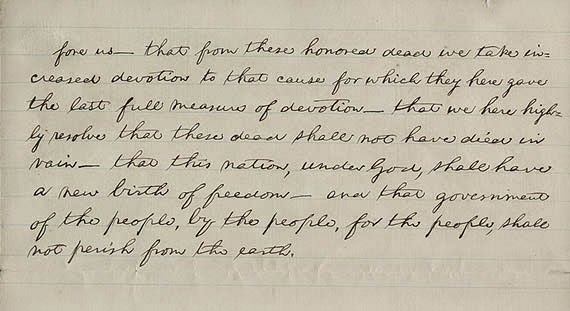 fore us— that from these honored dead we take in=
creased devotion to that cause for which they here gave
the last full measure of devotion— that we here high=
ly resolve that these dead shall not have died in
vain— that this nation, under God, shall have
a new birth of freedom— and that government
of the people, by the people, for the people, shall
not perish from the earth.